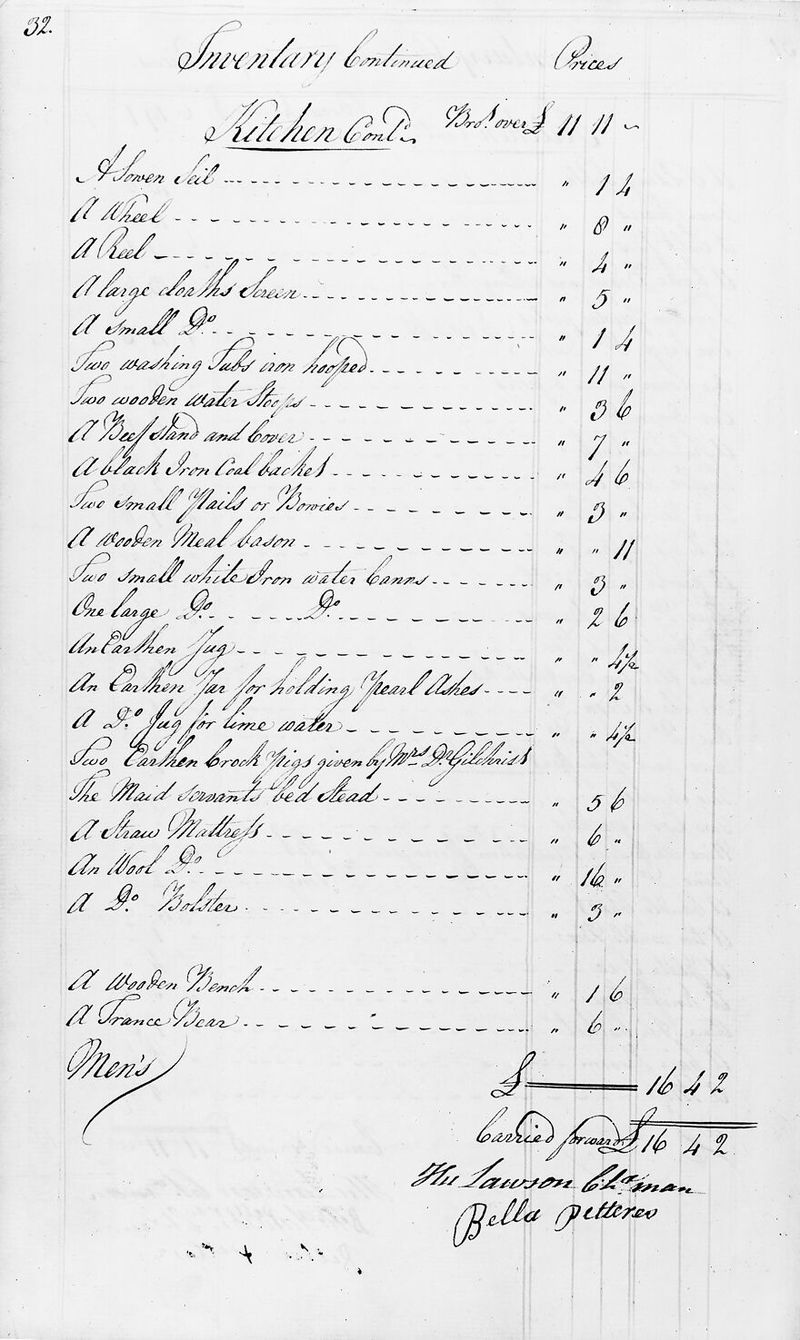 32.
Inventary Continued Prices
Kitchen Contd. Brot. over £ 11 11 ~
A Sowen Seil " 1 4
A Wheel " 8 "
A Reel " 4 "
A large cloaths Screen " 5 "
A small Do. " 1 4
Two washing Tubs iron hooped " 11 "
Two wooden water Stoops " 3 6
A Beef stand and Cover " 7 "
A black Iron Coal backet " 4 6
Two small Pails or Bowies " 3 "
A wooden Meal bason " " 11
Two small white Iron water Canns " 3 "
One large Do. Do. " 2 6
An Earthen Jug " " 4½
An Earthen Jar for holding Pearl Ashes " " 2
A Do. Jug for lime water " " 4½
Two Earthen Crock pigs given by Mrs Dr Gilchrist
The Maid servants bed Stead " 5 6
A Straw Mattress " 6 "
An Wool Do. " 16 "
A Do. Bolster " 3 "
A Wooden Bench " 1 6
A Trance Bear " 6 "
Men's
£ 16 4 2
Carried forward £ 16 4 2
Hu Lawson Cha.man
Bella